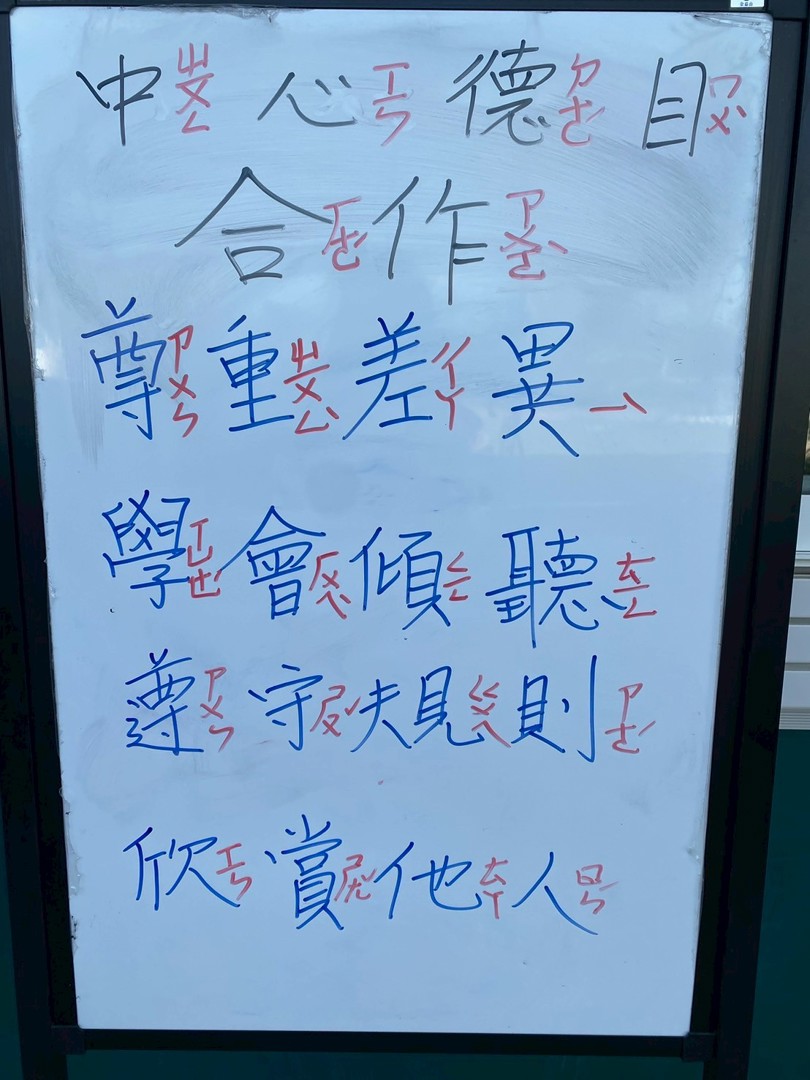 中ㄓㄨㄥ心ㄒㄧㄣ德ㄉㄜˊ目ㄇㄨˋ
合ㄏㄜˊ作ㄗㄨㄛˋ
尊ㄗㄨㄣ重ㄓㄨㄥˋ差ㄔㄚ異ㄧˋ
學ㄒㄩㄝˊ會ㄏㄨㄟˋ傾ㄑㄧㄥ聽ㄊㄧㄥ
遵ㄗㄨㄣ守ㄕㄡˇ規ㄍㄨㄟ則ㄗㄜˊ
欣ㄒㄧㄣ賞ㄕㄤˇ他ㄊㄚ人ㄖㄣˊ